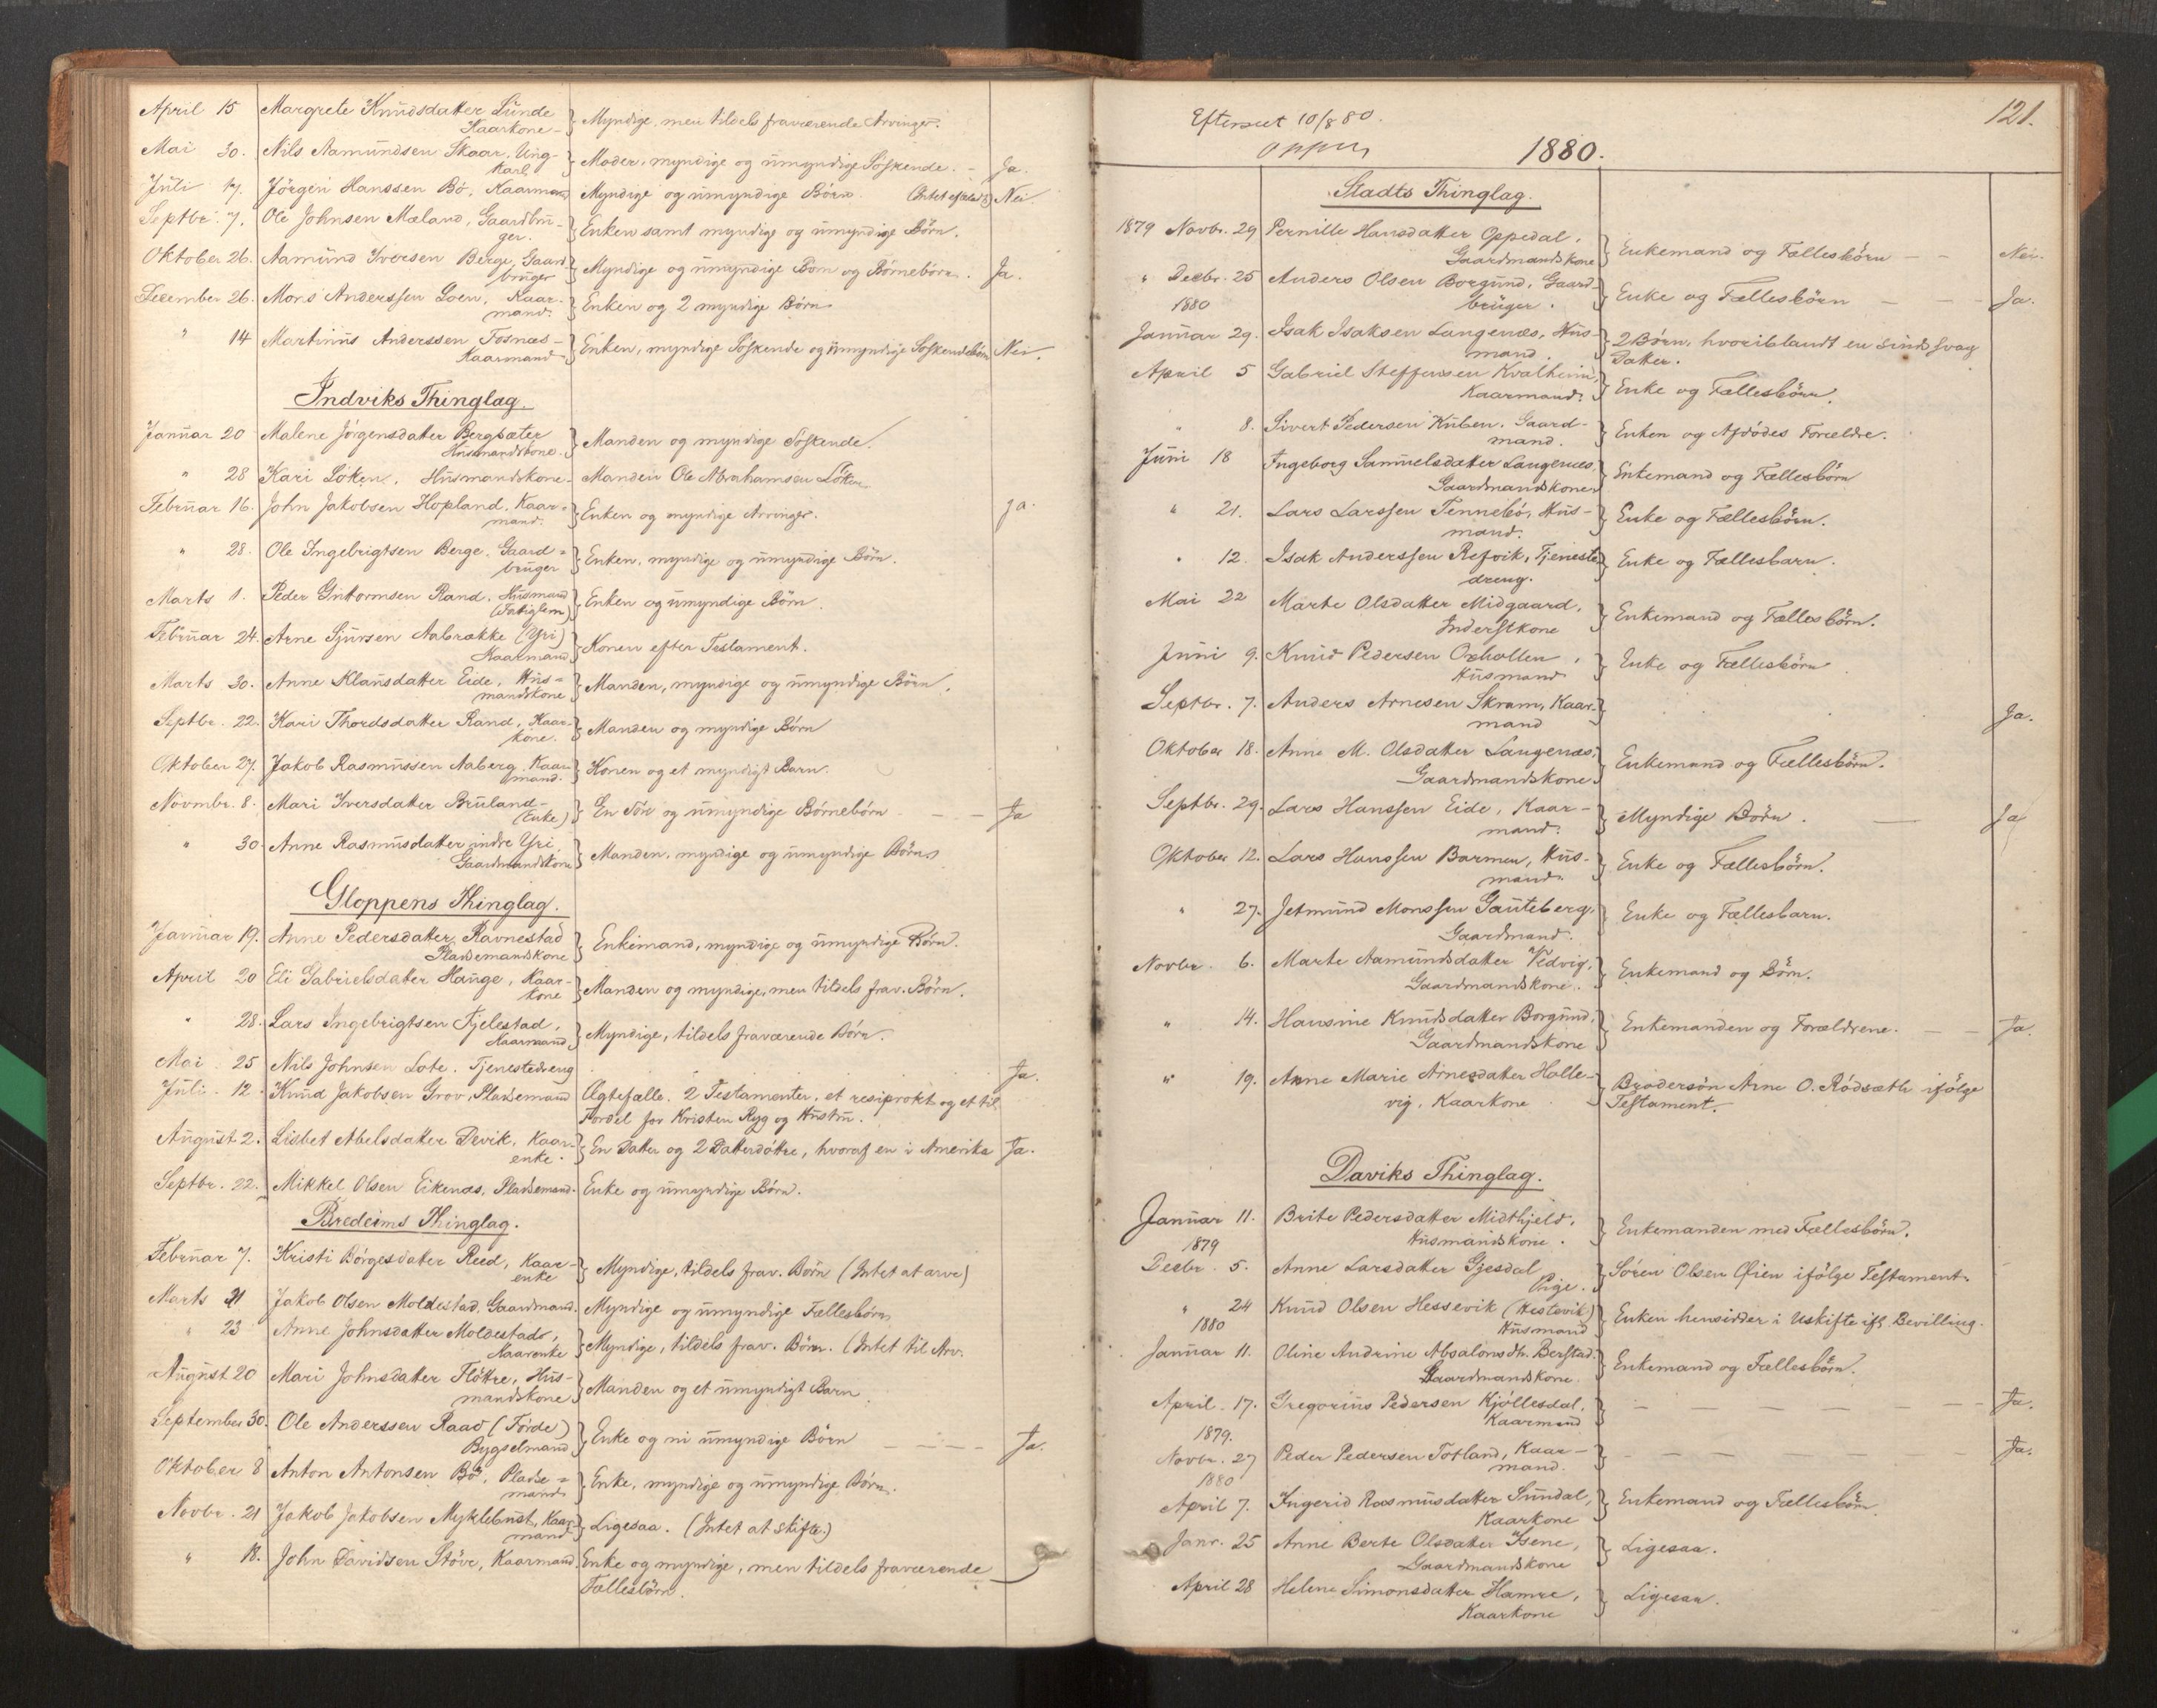 April 15 Margrete Knudsdatter Lunde
Kaarkone - } Myndige, men tildels fraværende Arvinger.
Mai 30. Nils Aamundsen Skaar, Ung-
karl } Moder, myndige og umyndige Søskende. - Ja.
Juli 17. Jörgen Hanssen Bö, Kaarmand Myndige og umyndige Börn. Nei.
Septbr. 7. Ole Johnsen Mæland, Gaardbru-
ger. } Enken samt myndige og umyndige Börn.
Oktober 26. Aamund Iversen Berge, Gaard
bruger } Myndige og umyndige Börn og Börnebörn. Ja.
December 26. Mons Anderssen Loen, Kaar-
mand. } Enken og 2 myndige Börn
" 14 Martinus Anderssen Fosnæs-
Kaarmand } Enken, myndige Söskende og umyndige Söskendebörn Nei.
Indviks Thinglag.
Januar 20 Malene Jörgensdatter Bergsæter
Husmandskone. } Manden og myndige Söskende.
" 28 Kari Löken, Husmandskone - Manden Ole Abrahamsen Löken
Februar 16. John Jakobsen Hopland, Kaar-
mand. } Enken og myndige Arvinger. ja.
" 28. Ole Ingebrigtsen Berge, Gaard-
bruger } Enken, myndige og umyndige Börn.
Marts 1. Peder Guttormsen Rand, Husmand
(Fattiglem) } Enken og umyndige Börn.
Februar 24. Arne Sjursen Aabrække (Yri)
Kaarmand } Konen efter Testament.
Marts 30. Anne Klausdatter Eide, Hus-
mandskone } Manden, myndige og umyndige Börn.
Septbr. 22. Kari Thordsdatter Rand, Kaar-
kone. } Manden og myndige Börn
Oktober 27. Jakob Rasmussen Aaberg, Kaar
mand. } Konen og et myndigt Barn.
Novmbr. 8. Mari Iversdatter Bruland-
(Enke) } En Sön og umyndige Börnebörn - - Ja
" 30. Anne Rasmusdatter indre Yri
Gaardmandskone } Manden, myndige og umyndige Börn
Gloppens Thinglag.
Januar 19. Anne Pedersdatter Ravnestad
Pladsemandskone } Enkemand, myndige og umyndige Börn.
April 20 Eli Gabrielsdatter Hauge, Kaar-
kone } Manden og myndige, men tildels frav. Börn.
" 28. Lars Ingebrigtsen Fjelestad,
Kaarmand } Myndige, tildels fraværende Börn.
Mai 25 Nils Johnsen Lote, Tjenestedreng Ja.
Juli 12. Knud Jakobsen Grov, Pladsemand Ægtefælle. 2 Testamenter, et resiprokt og et til
Fordel for Kristen Ryg og Hustru.
August 2. Lisbet Abelsdatter Devik, Kaar-
enke. } En Datter og 2 Datterdötre, hvoraf en i Amerika Ja.
Septbr. 22. Mikkel Olsen Eikenæs, Pladsemand. Enke og umyndige Börn.
Bredeims Thinglag.
Februar 7. Kristi Börgesdatter Reed, Kaar-
enke } Myndige, tildels frav. Börn (Intet at arve)
Marts 21 Jakob Olsen Moldestad, Gaardmand. Myndige og umyndige Fællesbörn
" 23 Anne Johnsdatter Moldestad,
Kaarenke } Myndige, tildels frav. Börn. (Intet til Arv.
August 20 Mari Johnsdatter Flötre, Hus-
mandskone } Manden og et umyndigt Barn
September 30. Ole Anderssen Raad (Förde)
Bygselmand } Enke og ni umyndige Börn - - - Ja.
Oktober 8 Anton Antonsen Bö, Pladse-
mand } Enke, myndige og umyndige Börn.
Novbr. 21 Jakob Jakobsen Myklebust, Kaar-
mand } Ligesaa. (Intet at skifte.)
" 18. John Davidsen Störe, Kaarmand. Enke og myndige, men tildels fraværende
Fællesbörn.
121.
Efterseet 10/8 80.
1880.
Stadts Thinglag.
1879 Novbr. 29 Pernille Hansdatter Oppedal,
Gaardmandskone } Enkemand og Fællesbörn - - Nei.
" Decbr. 25 Anders Olsen Borgund, Gaard-
1880 bruger. } Enke og Fællesbörn - - - Ja.
Januar 29. Isak Isaksen Langenæs, Hus-
mand. } 2 Börn, hvoriblandt en sindssvag
Datter.
April 5 Gabriel Steffensen Kvalheim,
Kaarmand. } Enke og Fællesbörn.
" 8. Sivert Pedersen Kuben, Gaard-
mand. } Enken og Afdödes Forældre.
Juni 18 Ingeborg Samuelsdatter Langenæs,
Gaardmandskone } Enkemand og Fællesbörn
" 21. Lars Larssen Tennebö, Hus-
mand. } Enke og Fællesbörn.
" 12. Isak Anderssen Refvik, Tjeneste
dreng. } Enke og Fællesbarn.
Mai 22 Marte Olsdatter Midgaard,
Inderstkone } Enkemand og Fællesbörn.
Juni 9. Knud Pedersen Oxhollen,
Husmand } Enke og Fællesbörn
Septbr. 7. Anders Arnesen Skram, Kaar-
mand } Ja.
Oktober 18. Anne M. Olsdatter Langenæs,
Gaardmandskone } Enkemand og Fællesbörn.
Septbr. 29. Lars Hanssen Eide, Kaar-
mand. } Myndige Börn. - Ja
Oktober 12. Lars Hanssen Barmen, Hus-
mand. } Enke og Fællesbörn.
" 27. Jetmund Monssen Gauteberg,
Gaardmand. } Enke og Fællesbarn.
Novbr. 6. Marte Aamundsdatter Vedvig,
Gaardmandskone. } Enkemand og Börn.
" 14. Hansine Knudsdatter Borgund,
Gaardmandskone } Enkemanden og Forældrene. - - Ja.
" 19. Anne Marie Arnesdatter Halle-
vig, Kaarkone } Brodersön Arne O. Rödsæth ifölge
Testament.
Daviks Thinglag.
Januar 11. Brite Pedersdatter Midthjeld,
1879 Husmandskone. } Enkemanden med Fællesbörn.
Decbr. 5. Anne Larsdatter Gjesdal
Pige. } Sören Olsen Öien ifölge Testament.
" 24 Knud Olsen Hessevik (Hestevik)
1880 Husmand } Enken hensidder i Uskifte ifl. Bevilling.
Januar 11. Oline Andrine Absalonsdtr. Berstad.
Gaardmandskone. } Enkemand og Fællesbörn.
April 17. Gregorius Pedersen Kjöllesdal,
Kaarmand } - - - - - - Ja.
1879.
Novbr. 27 Peder Pedersen Totland, Kaar-
mand. } - - - - - Ja.
1880
April 7. Ingerid Rasmusdatter Sundal,
Kaarkone } Enkemand og Fællesbörn
Janr. 25 Anne Berte Olsdatter Isene,
Gaardmandskone } Ligesaa.
April 28 Helene Simonsdatter Hamre,
Kaarkone } Ligesaa.